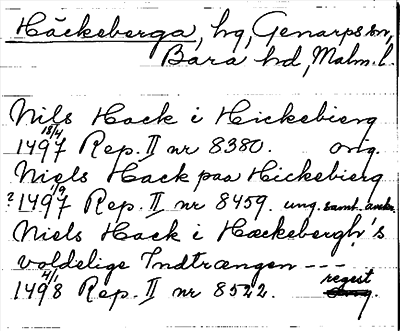 Häckeberga, hg, Genarps sn,
Bara hd, Malm. l.
Nils Hack i Hickebierg
18/4
1497 Rep. II nr 8380. orig.
Niels Hack paa Hickebierg
1/9
? 1497 Rep. II nr 8459. ung. samt. ankr.
Niels Hack i Hæckebergh's
voldelige Indtrængen ---
4/1
1498 Rep. II nr 8522. regest